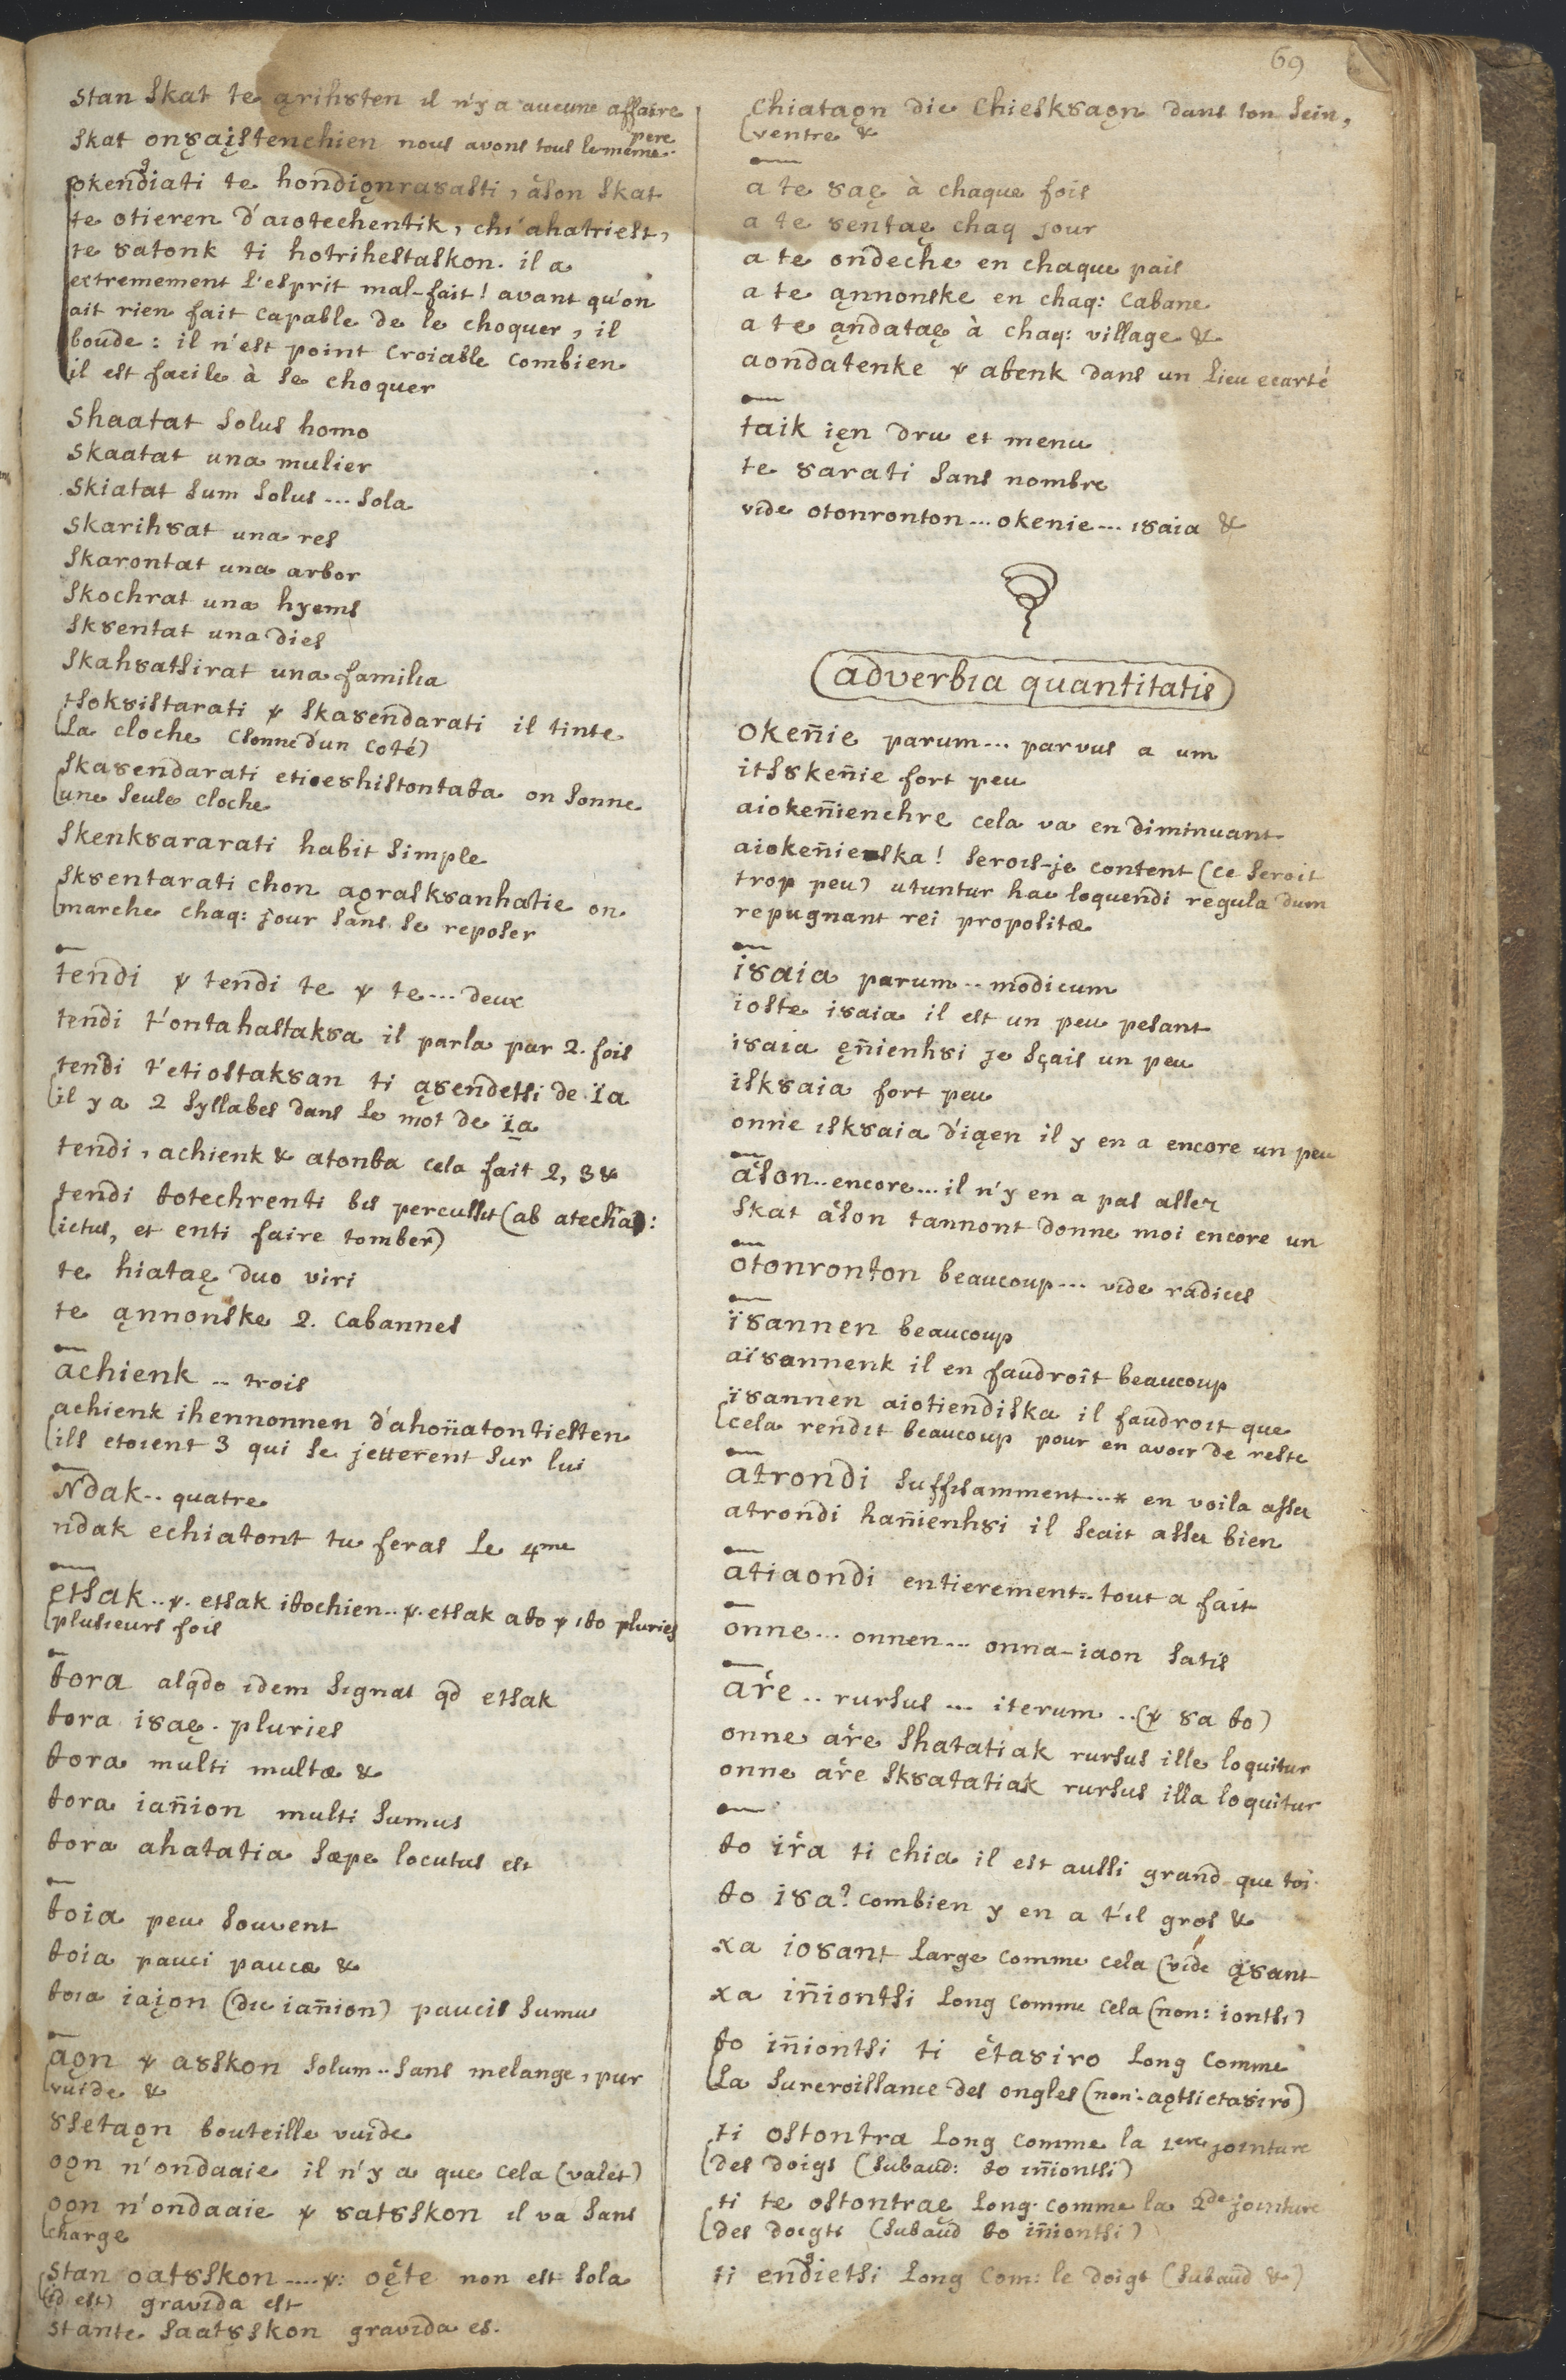 69
stan skat te ąrihȣten il n'y a aucune affaire
skat onȣąįstenchien nous avons tous le même pere
okendiati te hondiǫnrasasti, ason skat
te otieren d'aiotechentik, chi ahatriest,
te ȣatonk ti hotrihestaskon. il a
extremement l'esprit mal-fait! avant qu'on
ait rien fait capable de le choquer, il
boude: il n'est point croiable combien
il est facile à se choquer
shaatat solus homo
skaatat una mulier
skiatat sum solus ... sola
skarihȣat una res
skarontat una arbor
skochrat una hyems
skȣentat una dies
skahȣatsirat una familia
tsokȣistarati ꝟ skaȣendarati il tinte
la cloche (sonne d'un coté)
skaȣendarati etioeshistontaƀa on sonne
une seule cloche
skenkȣararati habit simple
skȣentarati chon aǫraskȣanhatie on
marche chaq: jour sans se reposer
tendi ꝟ tendi te ꝟ te ... deux
tendi t'ontahastakȣa il parla par 2. fois
tendi t'etiostakȣan ti ąȣendetsi de ïa
il y a 2 syllabes dans le mot de ïa
tendi, achienk & atonƀa cela fait 2, 3 &
tendi ƀotechrenti bis percussit (ab atechia:
ictus, et enti faire tomber)
te hiataę duo viri
te ąnnonske 2. cabannes
achienk .. trois
achienk ihennonnen d'ahoñatontiesten
ils etoient 3 qui se jetterent sur lui
Ndak .. quatre
ndak echiatont tu feras le 4me
etsak .. ꝟ. etsak iƀochien .. ꝟ. etsak aƀo ꝟ iƀo pluries
plusieurs fois
ƀora alqdo idem signat qd etsak
ƀora isaę. pluries
ƀora multi multæ &
ƀora iañion multi sumus
ƀora ahatatia sæpe locutus est
ƀoia peu souvent
ƀoia pauci paucæ &
ƀoia iąįon (die iañion) paucis sumus
aǫn ꝟ aȣskon solum .. sans melange, pur
vuide &
ȣsetaǫn bouteille vuide
oǫn n'ondaaie il n'y a que cela (valet)
oǫn n'ondaaie ꝟ ȣatȣskon il va sans
charge
stan oatȣskon .... ꝟ: oęte non est sola
(id est) gravida est
stante saatȣskon gravida es.
chiataǫn die chieskȣaǫn dans ton sein,
ventre &
a te ȣaę à chaque fois
a te ȣentaę chaq jour
a te ondeche en chaque païs
a te ąnnonske en chaq: cabane
a te ąndataę à chaq: village &
aondatenke ꝟ aƀenk dans un lieu ecarté
taik ięn dru et menu
te ȣarati sans nombre
vide otonronton ... okenie ... iȣaia &
adverbia quantitatis
okeñie parum ... parvus a um
itsȣkeñie fort peu
aiokeñienchre cela va en diminuant
aiokeñieska! serois-je content (ce seroit
trop peu) utuntur hac loquendi regula dum
repugnant rei propositæ
iȣaia parum .. modicum
ioste iȣaia il est un peu pesant
iȣaia ęñienhȣi je sçais un peu
iskȣaia fort peu
onne iskȣaia d'iąen il y en a encore un peu
ason .. encore ... il n'y en a pas assez
skat ason tannont donne moi encore un
otonronton beaucoup ... vide radices
iȣannen beaucoup
aïȣannenk il en faudroit beaucoup
iȣannen aiotiendiska il faudroit que
cela rendit beaucoup pour en avoir de reste
atrondi suffisamment ... * en voila assez
atrondi hañienhȣi il scait assez bien
atiaondi entierement .. tout a fait
onne ... onnen ... onna-iaon satis
are .. rursus ... iterum .. (ꝟ ȣa ƀo)
onne are shatatiak rursus ille loquitur
onne are skȣatatiak rursus illa loquitur
ƀo ira ti chia il est aussi grand que toi
ƀo iȣa? combien y en a t'il gros &
xa ioȣant large comme cela (vide ąȣant
xa iñiontsi long comme cela (non: iontsi)
ƀo iñiontsi ti etaȣiro long comme
la surcroissance des ongles (non: aǫtsietaȣiro)
ti ostontra long comme la 1ere jointure
des doigs (subaud: ƀo iñiontsi)
ti te ostontraę long comme la 2de jointure
des doigts (subaud ƀo iñiontsi)
ti endietsi long com: le doigt (subaud &)